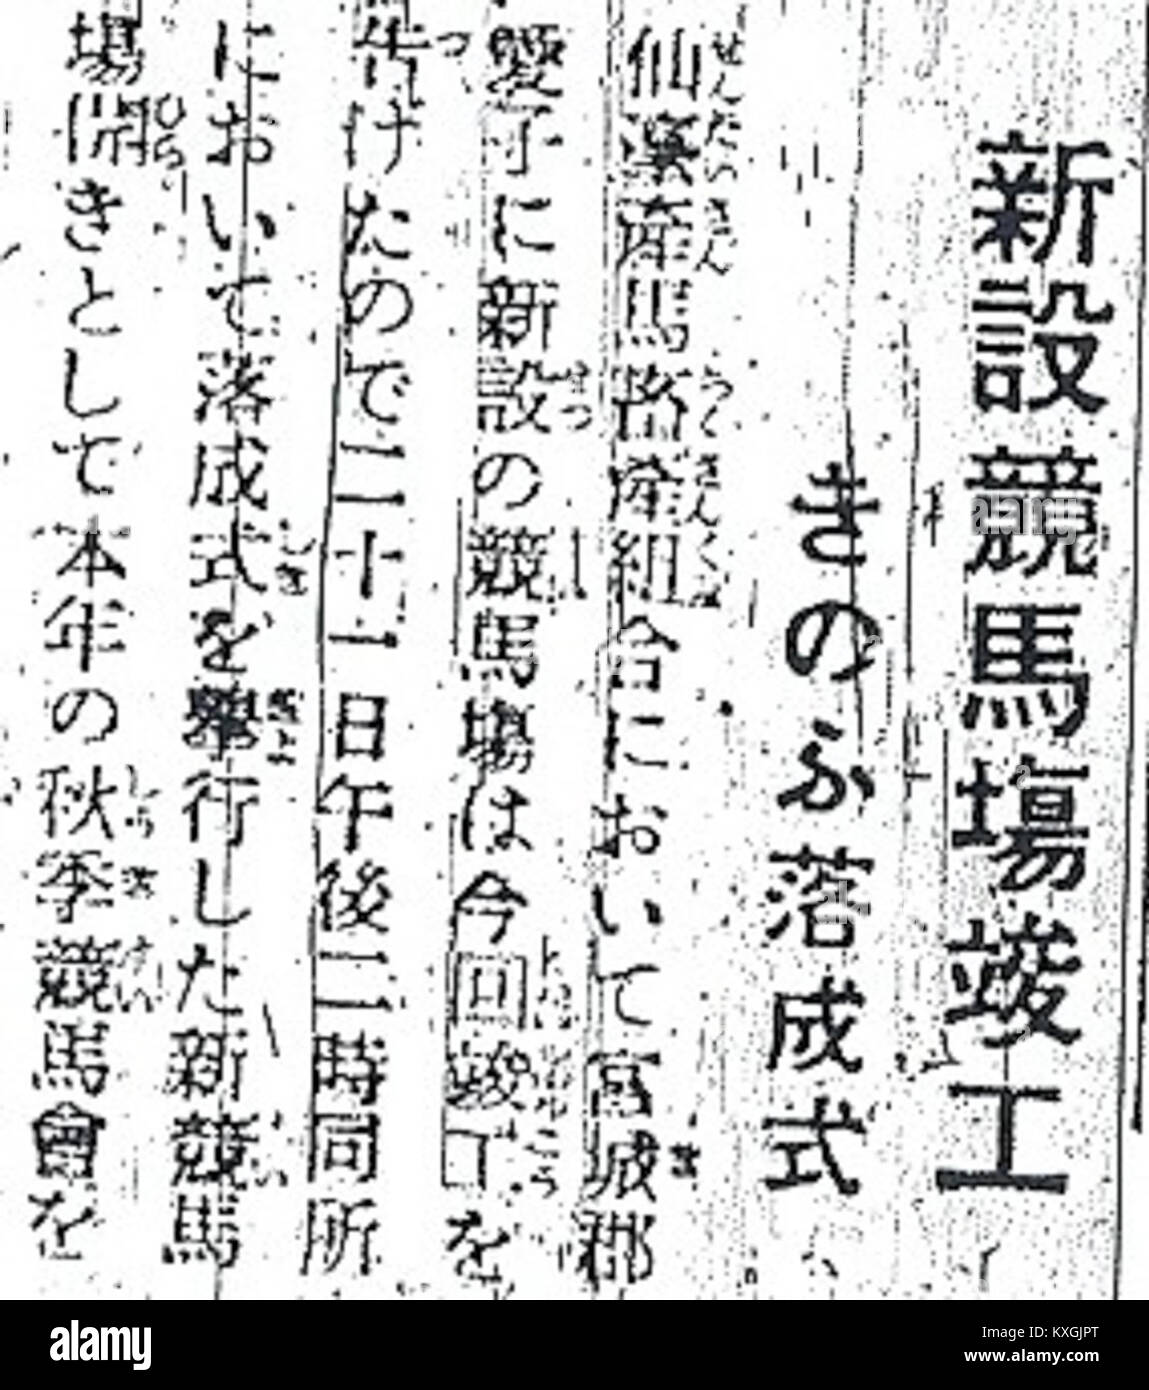 新設競馬場竣工
きのふ落成式
仙臺産馬畜産組合において宮城郡
愛子に新設の競馬場は今回竣工を
告けたので二十一日午後二時同所
において落成式を擧行した新競馬
場開きとして本年の秋季競馬會を
alamy
Image ID: KXGJPT
www.alamy.com